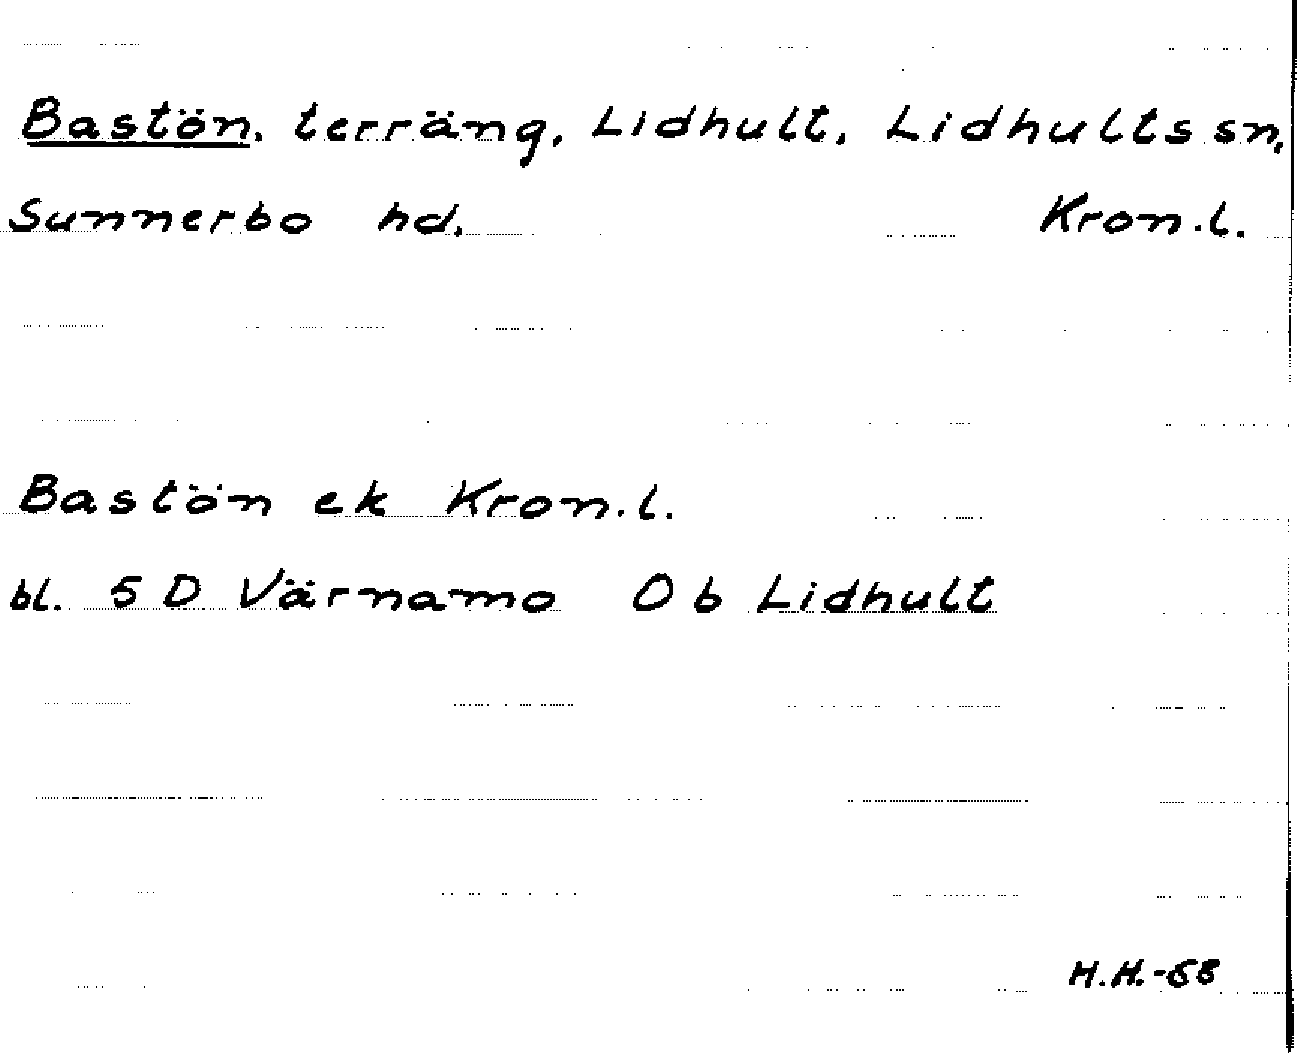 Bastön. terräng, Lidhult, Lidhults sn.
Sunnerbo hd. Kron.l.
Bastön ek Kron.l.
bl. 5 D Värnamo 0 b Lidhult
H.H.-68